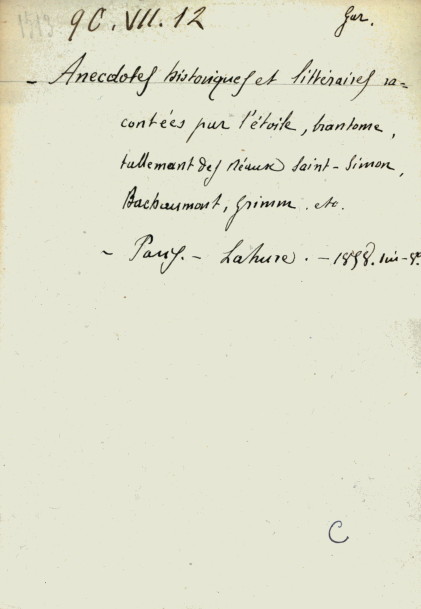 9C. VII. 12
Gur.
- Anecdotes historiques et littéraires ra-
contées par l'étoile, brantome,
tallement des réaux Saint-Simon,
Bachaumont, Grimm. etc.
- Paris. - Lahure. - 1858. in-8º
C